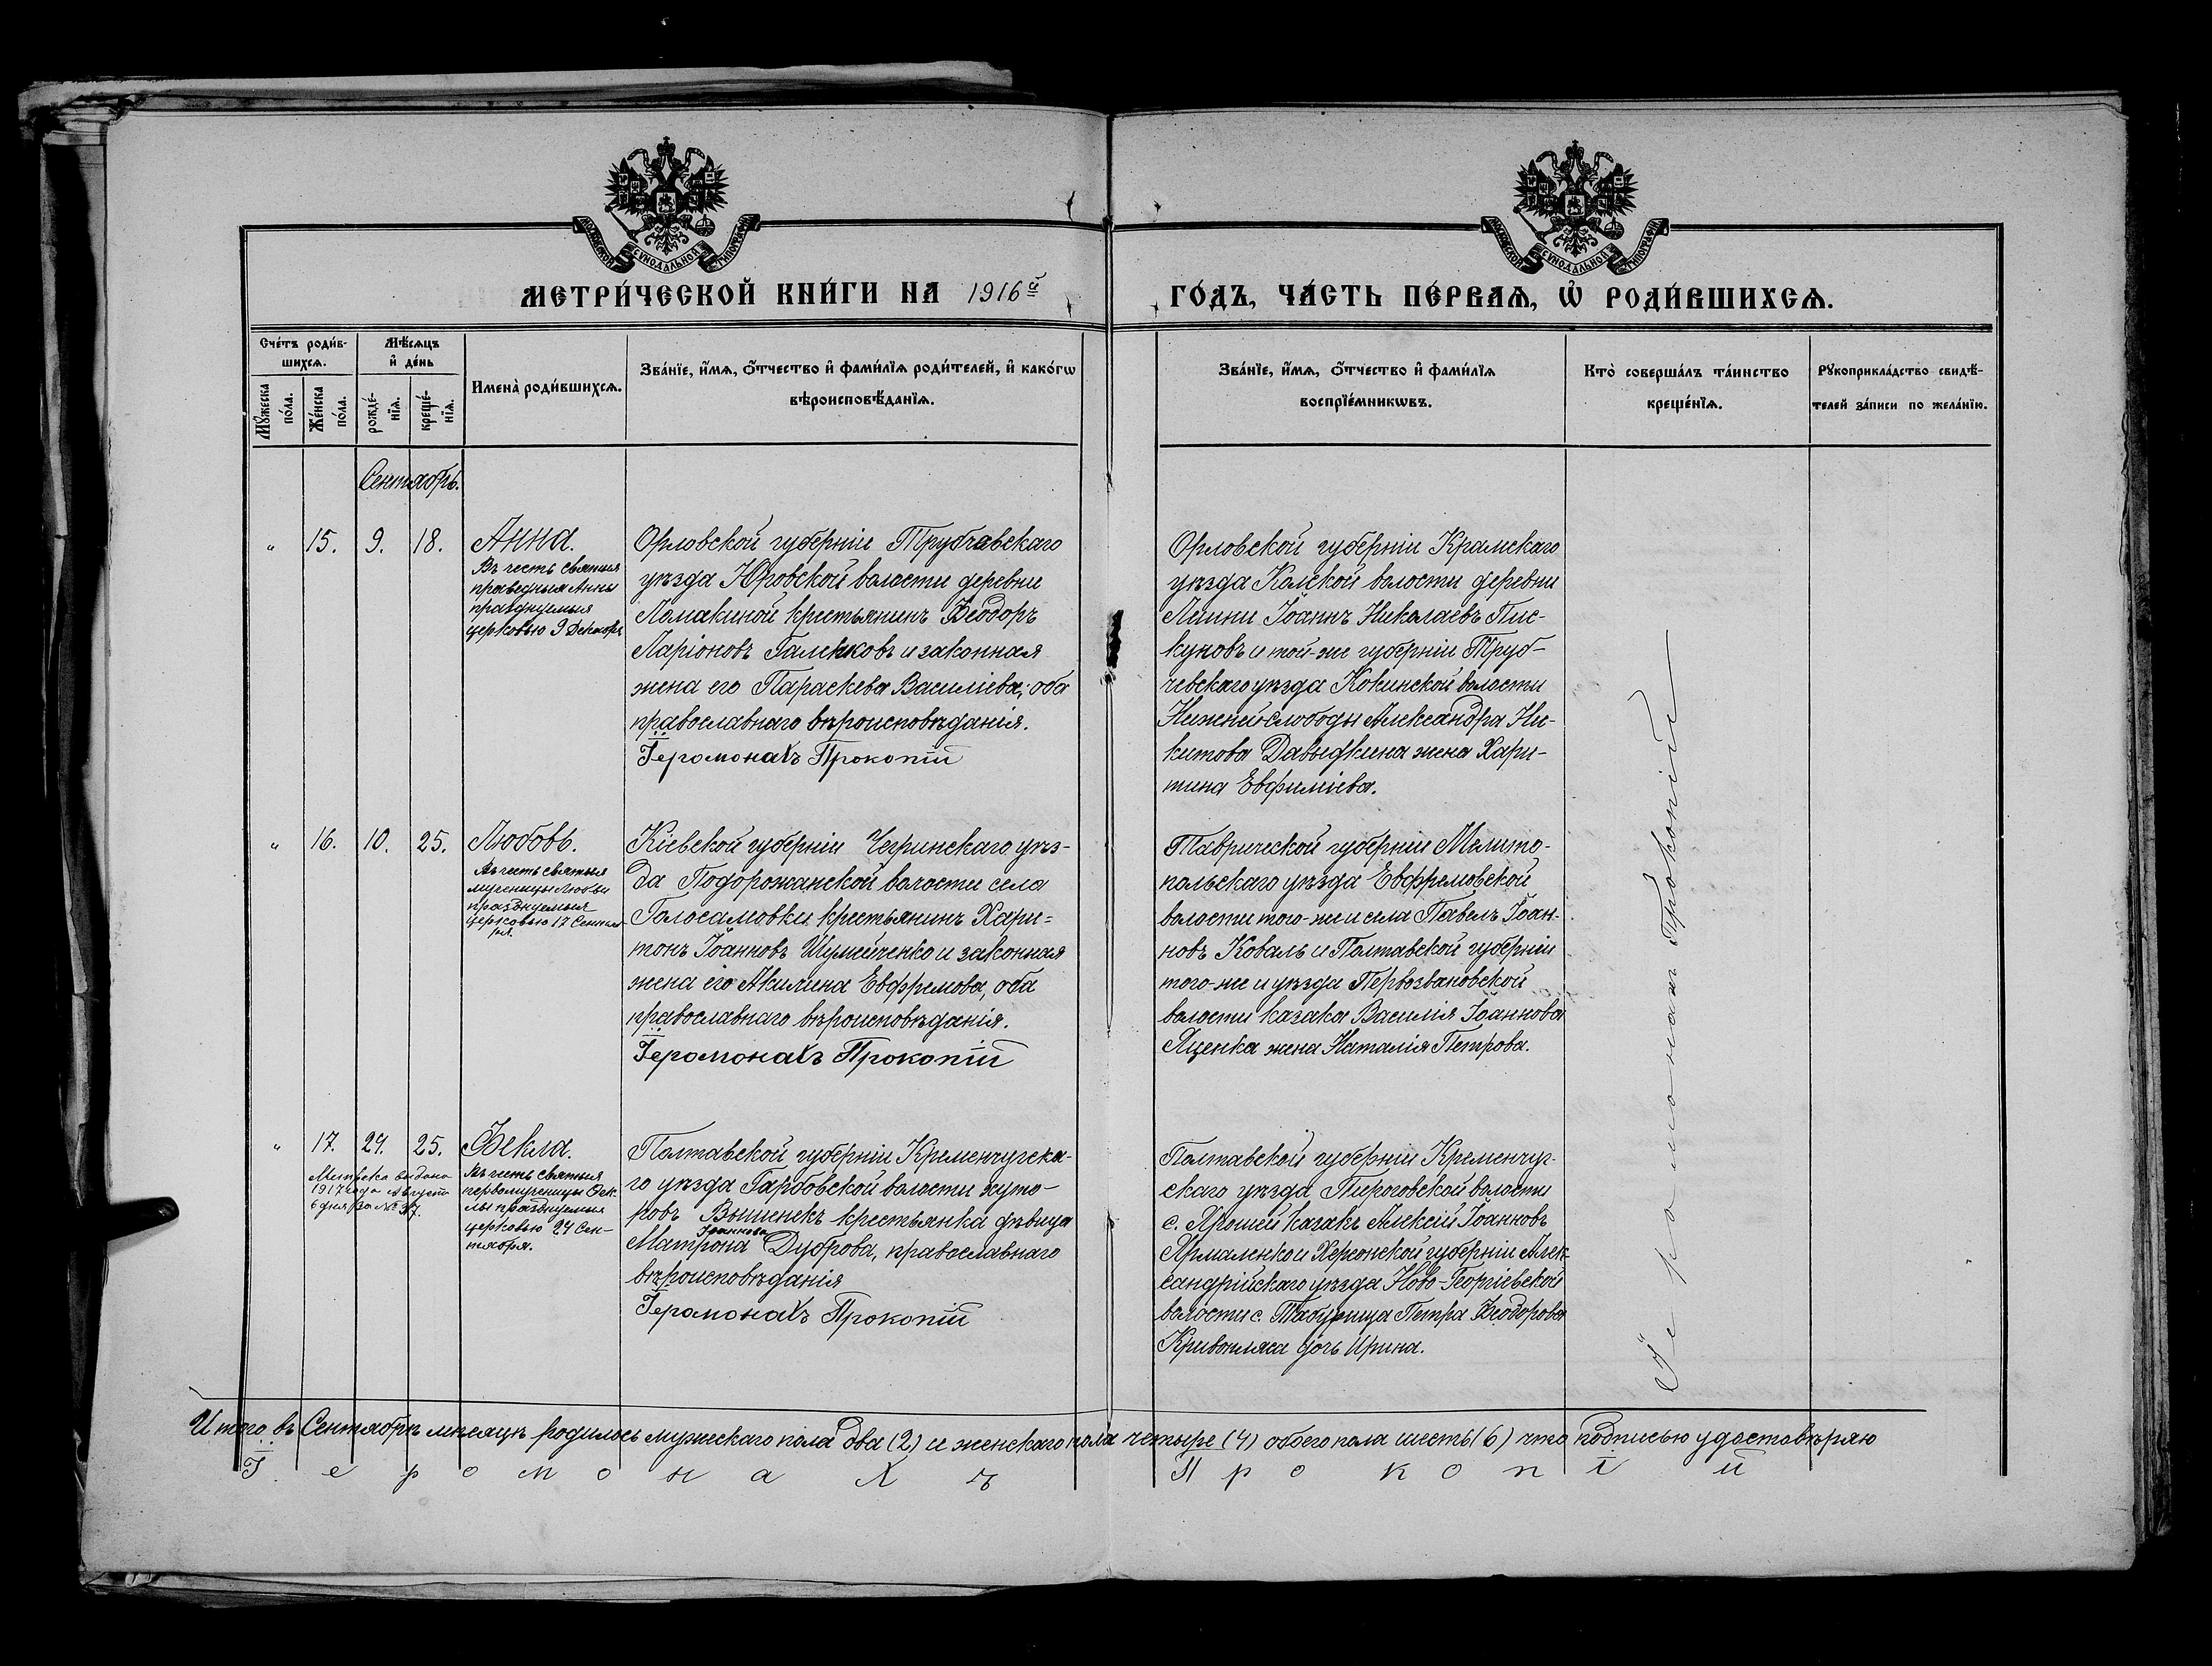 МОСКОВСКОЙ СѴНОДАЛЬНОЙ ТИПОГРАФІИ
МОСКОВСКОЙ СѴНОДАЛЬНОЙ ТИПОГРАФІИ
МЕТРИ́ЧЕСКОЙ КНИ́ГИ НА 1916й
ГО́ДЪ, ЧА́СТЬ ПЕ́РВАѦ, Ѡ҆ РОДИ́ВШИХСѦ.
Сче́тъ роди́в-
шихсѧ.
Мѣ́сѧцъ
и҆ де́нь
Мꙋ́жеска
по́ла.
Же́нска
по́ла.
рожде́-
нїѧ.
креще́-
нїѧ.
Имена̀ роди́вшихсѧ.
Зва́нїе, и҆́мѧ, ѻ҆́тчество и҆ фами́лїѧ роди́телей, и҆ како́гѡ
вѣроисповѣ́данїѧ.
Зва́нїе, и҆́мѧ, ѻ҆́тчество и҆ фами́лїѧ
воспрїе́мникѡвъ.
Кто̀ соверша́лъ та́инство
креще́нїѧ.
Рꙋкоприкла́дство свидѣ́-
телей за́писи по жела́нїю.
Сентябрь.
" 15. 9. 18. Анна.
Въ честь святыя
праведныя Анны
празднуемыя
церковью 9 Декабря
Орловской губерніи Трубчавскаго
уѣзда Юровской волости деревни
Ломакиной крестьянинъ Ѳеодоръ
Ларіоновъ Галенковъ и законная
жена его Параскева Василіева; оба
православнаго вѣроисповѣданія.
Іеромонахъ Прокопій
Орловской губерніи Крамскаго
уѣзда Колской волости деревни
Липни Іоаннъ Николаевъ Пис-
куновъ и той-же губерніи Труб-
чевскаго уѣзда Кокинской волости
Нижней слободы Александра Ни-
китова Давыдкина жена Хари-
тина Евфиміева.
" 16. 10. 25. Любовь.
Въ честь святыя
мученицы Любви
празднуемыя
церковью 17 Сентяб-
ря.
Кіевской губерніи Чегринскаго уѣз-
да Подорожанской волости села
Голосамовки крестьянинъ Хари-
тонъ Іоанновъ Шумейченко и законная
жена его Акилина Евфремова, оба
православнаго вѣроисповѣданія.
Іеромонахъ Прокопій
Таврической губерніи Мелито-
польскаго уѣзда Евфремовской
волости того-же и села Павелъ Іоан-
новъ Коваль и Полтавской губерніи
того-же и уѣзда Первозвановской
волости казака Василія Іоаннова
Яценка жена Наталія Петрова.
" 17. 24. 25. Ѳекла.
Метрика выдана
1917 года Августа
6 дня за № 37.
Въ честь святыя
первомученицы Ѳек-
лы празднуемыя
церковью 24 Сен-
тября.
Полтавской губерніи Кременчугска-
го уѣзда Гарбовской волости хуто-
ровъ Вышенекъ крестьянка дѣвица
Іоаннова
Матрона Дуброва, православнаго
вѣроисповѣданія
Іеромонахъ Прокопій
Полтавской губерніи Кременчуг-
скаго уѣзда Пироговской волости
с. Ярошей казакъ Алексій Іоанновъ
Ярмаленко и Херсонской губерніи Алек-
сандрійскаго уѣзда Ново-Георгіевской
волости с. Табурища Петра Ѳеодорова
Кривопляса дочь Ирина.
Іеромонахъ Прокопій
Итого въ Сентябрѣ мѣсяцѣ родилось мужескаго пола два (2) и женскаго пола четыре (4) обоего пола шесть (6) что подписью удостовѣряю
Іеромонахъ Прокопій